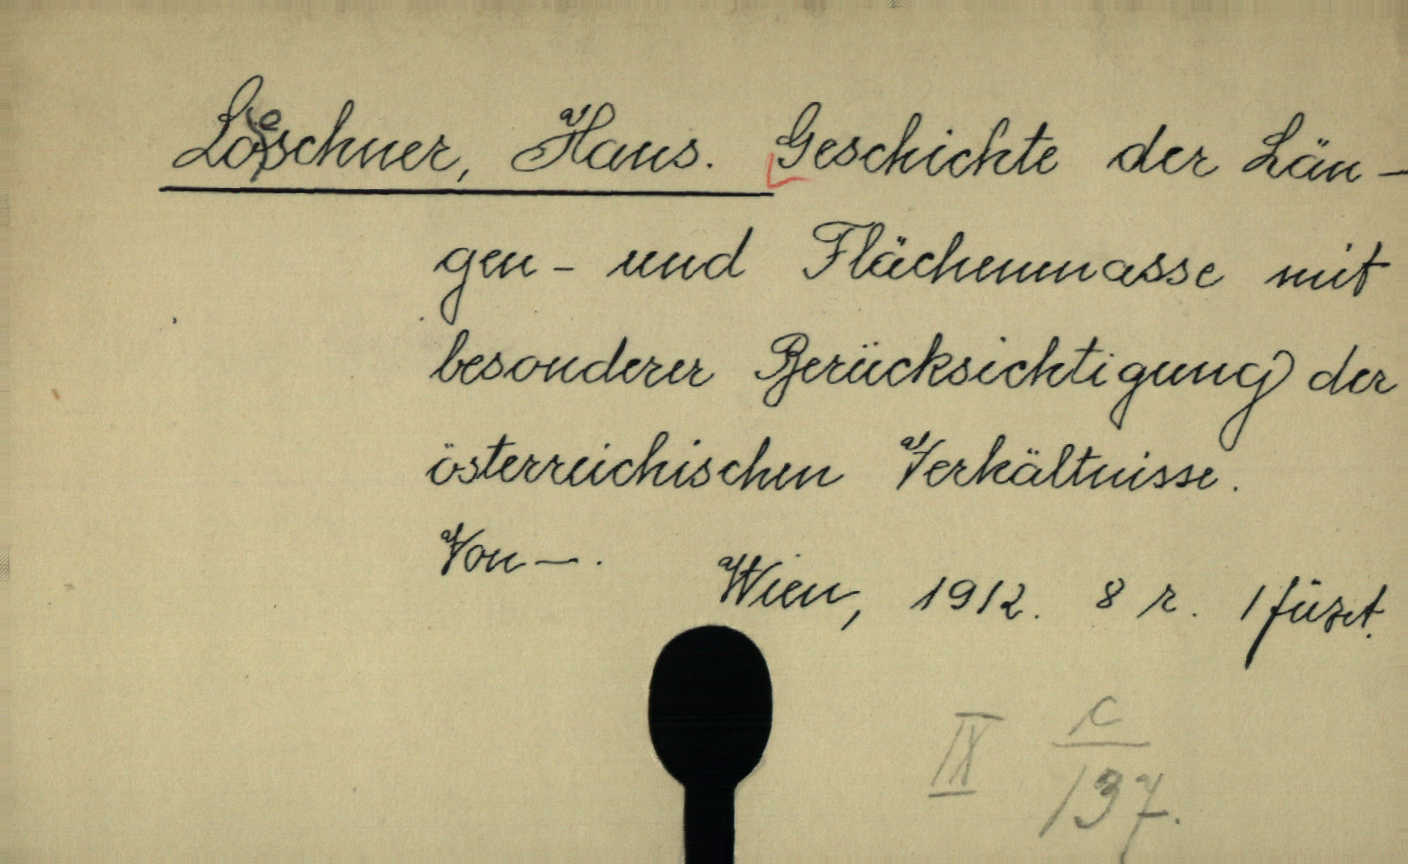 Loeschner, Hans. Geschichte der Län-
gen- und Flächenmasse mit
besonderer Berücksichtigung der
österreichischen Verhältnisse.
Von —.
Wien, 1912. 8 r. 1 füzet.
IX c/137.